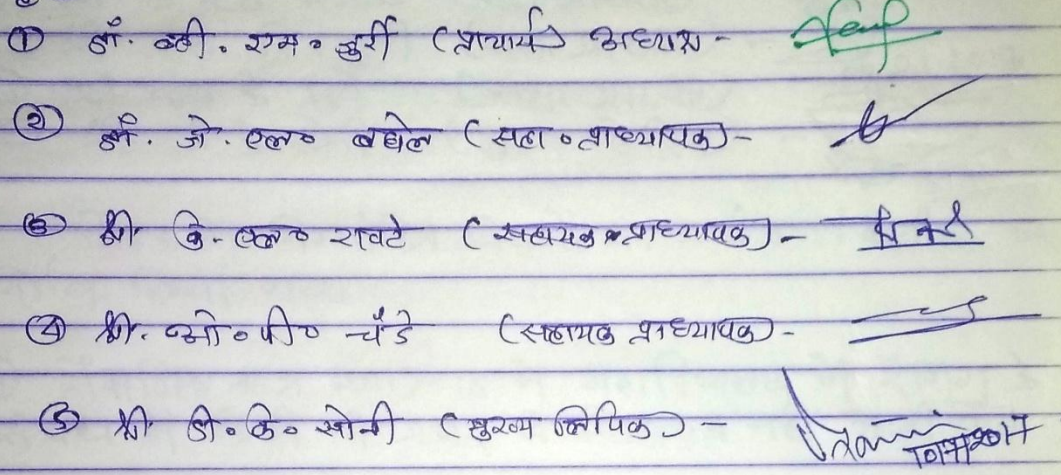 ① डॉ. व्ही. एम॰ चुर्री (प्राचार्य) अध्यक्ष -
② डॉ. जे. एल॰ बघेल (सहा॰ प्राध्यापक) -
③ श्री के. एल॰ रावटे (सहायक प्राध्यापक) -
④ श्री. ओ॰ पी॰ चँडे (सहायक प्राध्यापक) -
⑤ श्री डी॰ के॰ सोनी (मुख्य लिपिक) - 10/7/2017